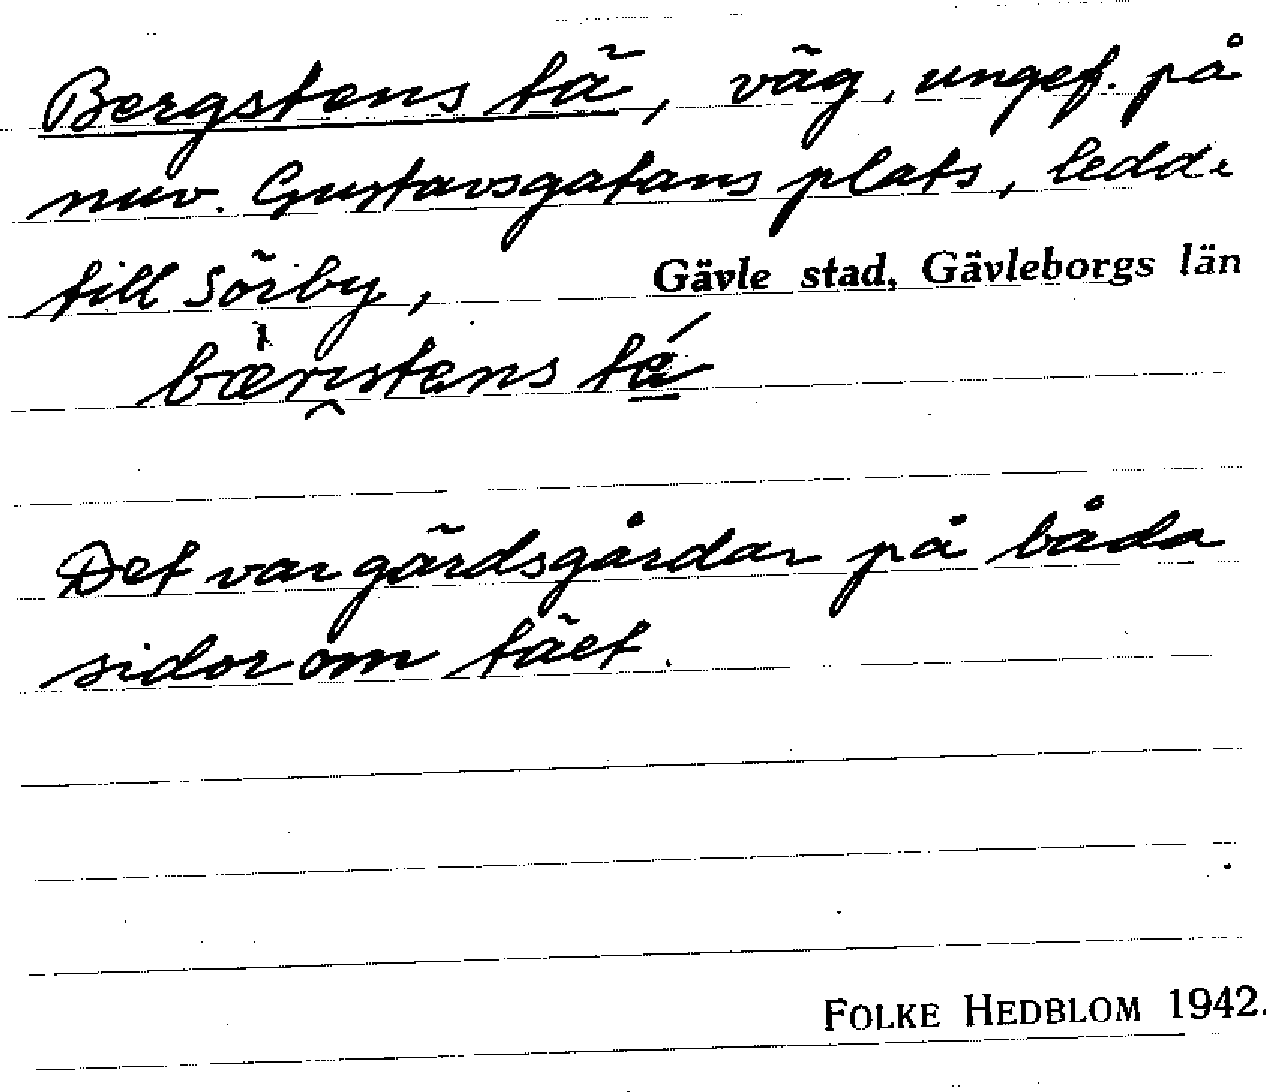 Bergstens tä, väg, ungef. på
nuv. Gustavsgatans plats, ledde
till Sörby, Gävle stad, Gävleborgs län
tä
Det var gärdsgårdar på båda
sidor om täet.
FOLKE HEDBLOM 1942.